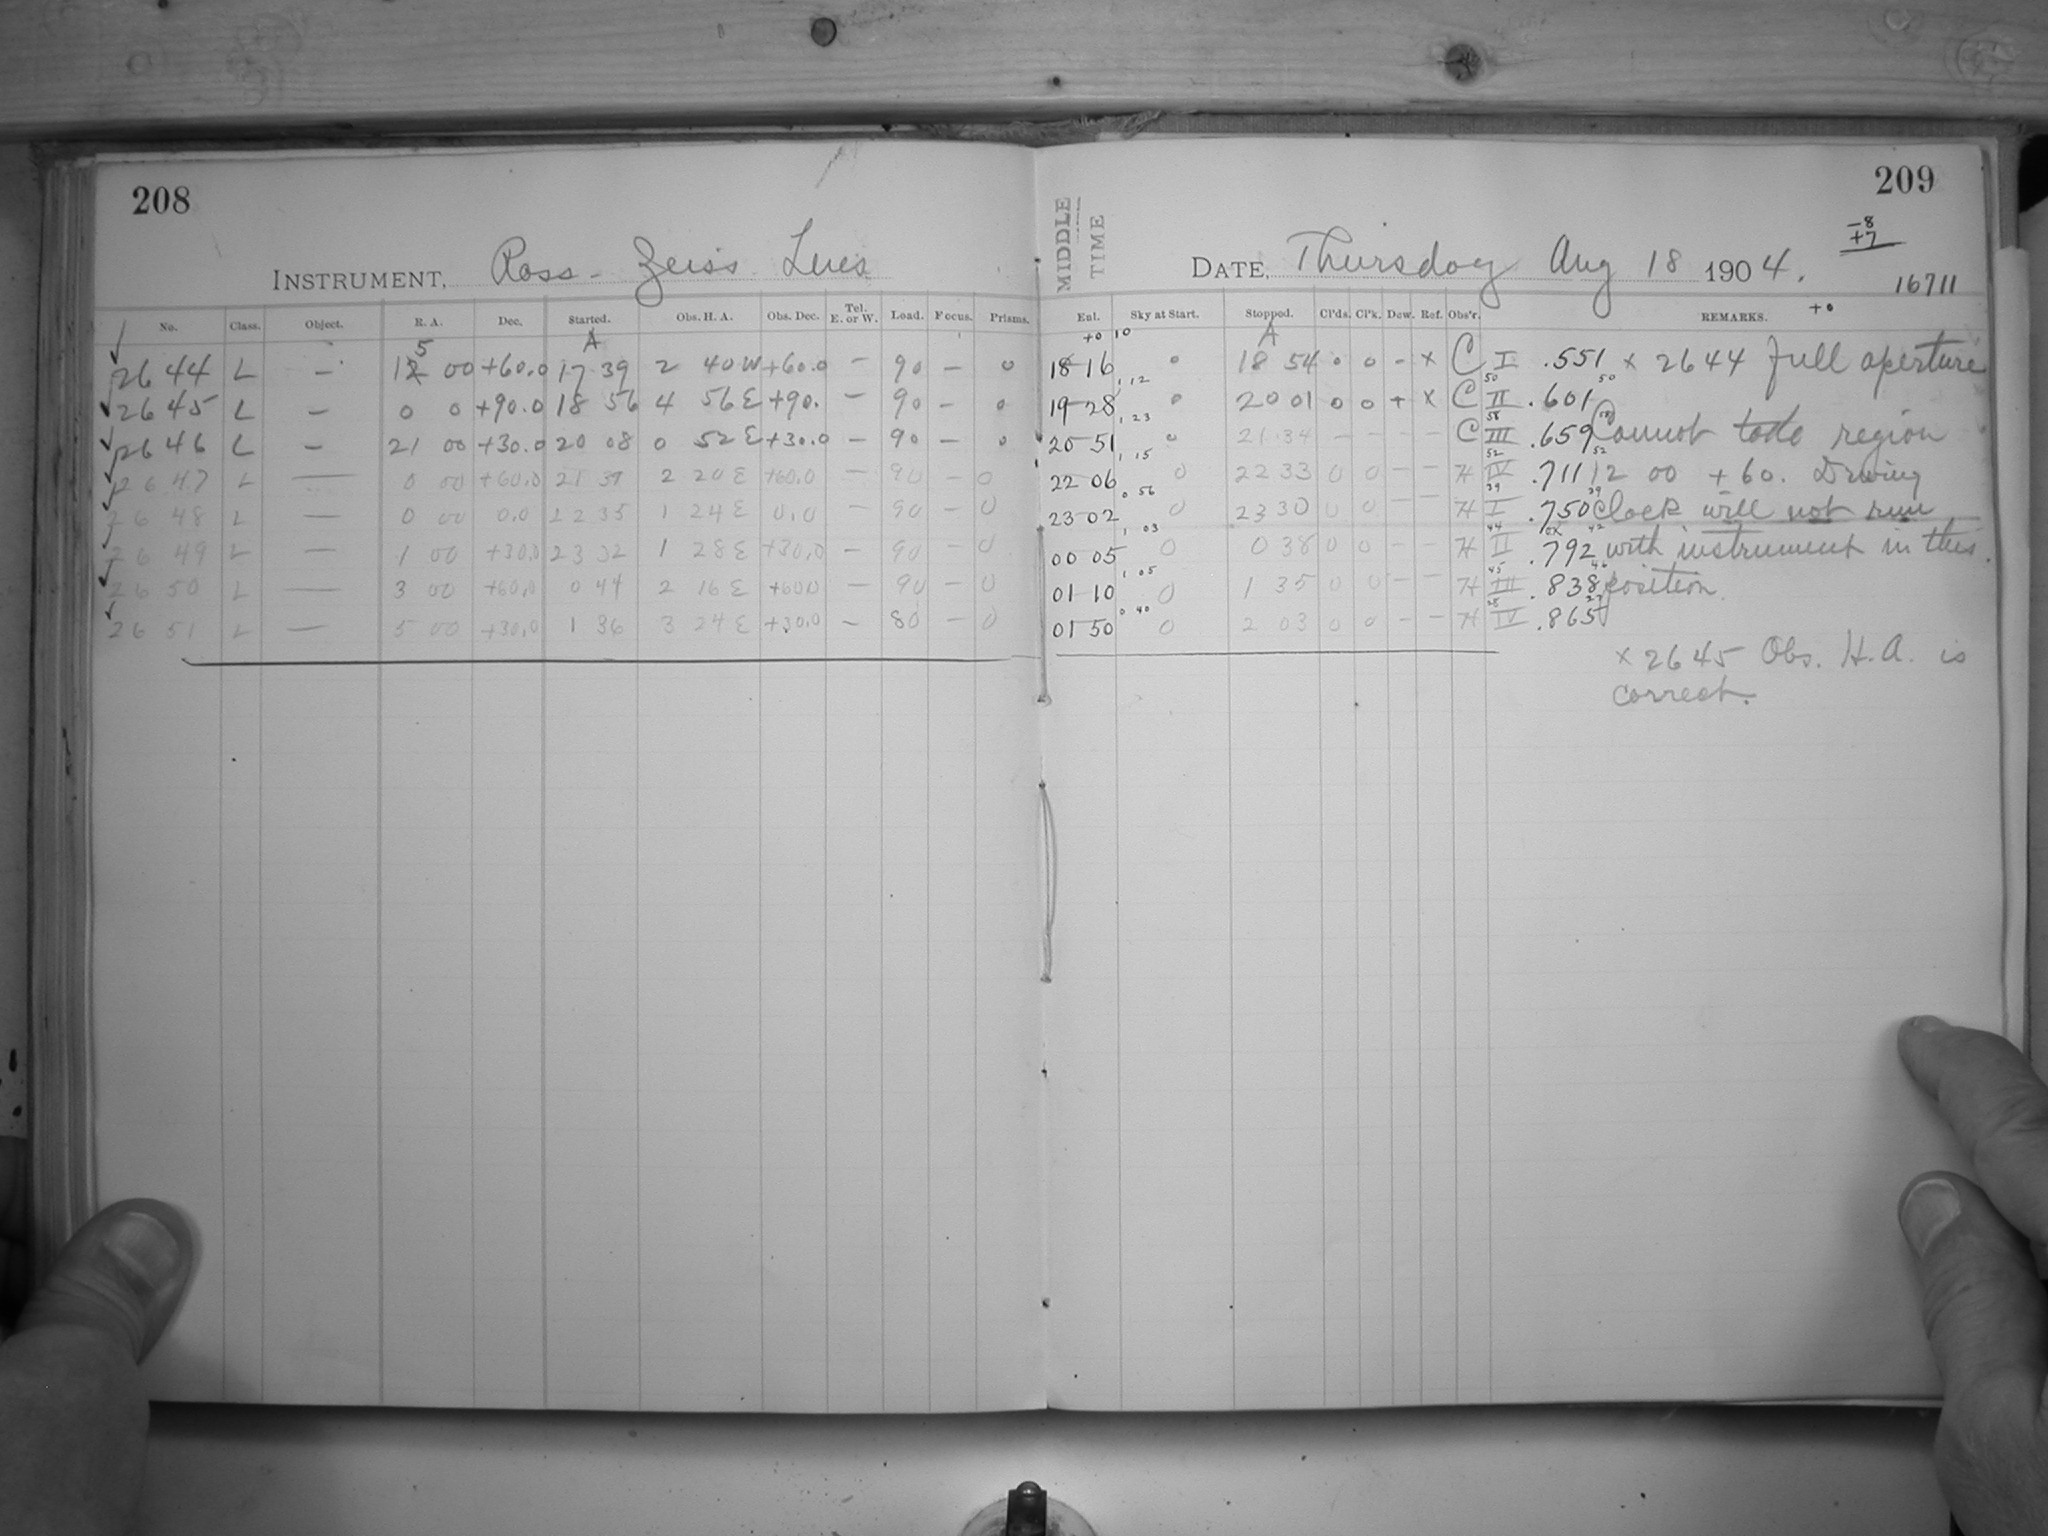 208
INSTRUMENT, Ross-Zeiss Lues
No. Class. Object. R. A. Dec. Started. Obs. H. A. Obs. Dec. Tel. E. or W. Load. Focus. Prisms.
5 A
2644 L — 12 00 +60.0 17 39 2 40 W +60.0 — 90 — 0
2645 L — 0 0 +90.0 18 56 4 56 E +90. — 90 — 0
2646 L — 21 00 +30.0 20 08 0 52 E +30.0 — 90 — 0
2647 L — 0 00 +60.0 21 39 2 20 E +60.0 — 90 — 0
2648 L — 0 00 0.0 22 35 1 24 E 0.0 — 90 — 0
2649 L — 1 00 +30.0 23 32 1 28 E +30.0 — 90 — 0
2650 L — 3 00 +60.0 0 44 2 16 E +60.0 — 90 — 0
2651 L — 5 00 +30.0 1 36 3 24 E +30.0 — 80 — 0
209
MIDDLE TIME
DATE, Thursday Aug 18 1904.
-8
+7
16711
Eul. Sky at Start. Stopped. Cl'ds. Cl'k. Dew. Ref. Obs'r. REMARKS. +0
+0 10 A
18 16 0 18 54 0 0 - x C I .551 x 2644 full aperture
1 12 50 50
19 28 0 20 01 0 0 + x C II .601
1 23 58 58
20 51 0 21 34 - - - - C III .659 Cannot todo region
1 15 52 52
22 06 0 22 33 0 0 - - H IV .711 12 00 +60. Driving
0 56 39 39
23 02 0 23 30 0 0 - - H I .750 clock will not run
1 03 44 42
00 05 0 0 38 0 0 - - H II .792 with instrument in this
1 05 45 46
01 10 0 1 35 0 0 - - H III .838 position.
0 40 28 27
01 50 0 2 03 0 0 - - H IV .865
x 2645 Obs. H.A. is
correct.